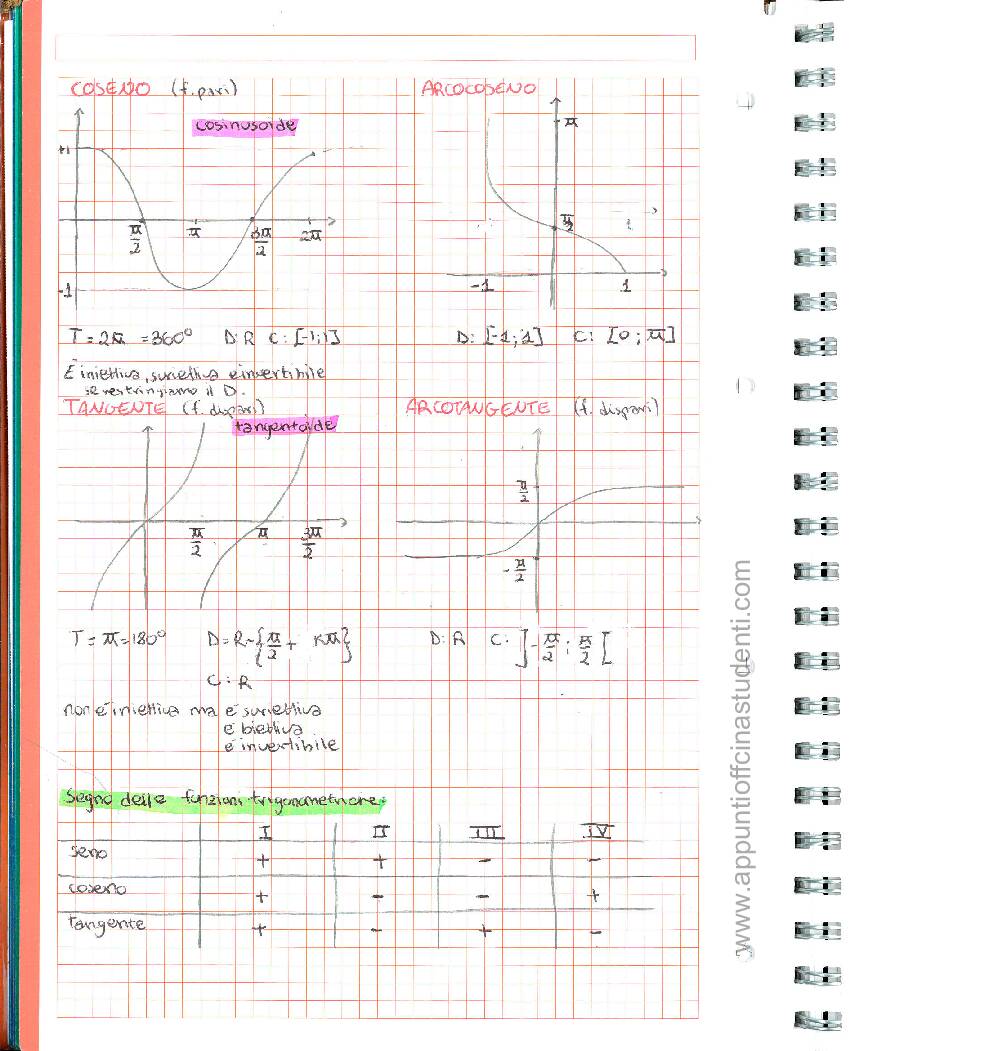 COSENO (f. pari)
cosinusoide
+1
π/2
π
3π/2
2π
-1
T = 2π = 360° D: R C: [-1;1]
È iniettiva, suriettiva e invertibile
se restringiamo il D.
ARCOCOSENO
π
π/2
-1
1
D: [-1;1] C: [0;π]
TANGENTE (f. dispari)
tangentoide
π/2
π
3π/2
T = π = 180° D = R - {π/2 + kπ}
C: R
non è iniettiva ma è suriettiva
è biettiva
è invertibile
ARCOTANGENTE (f. dispari)
π/2
-π/2
D: R C: ]-π/2 ; π/2[
Segno delle funzioni trigonometriche:
I II III IV
seno + + - -
coseno + - - +
tangente + - + -
www.appuntioffcinastudenti.com